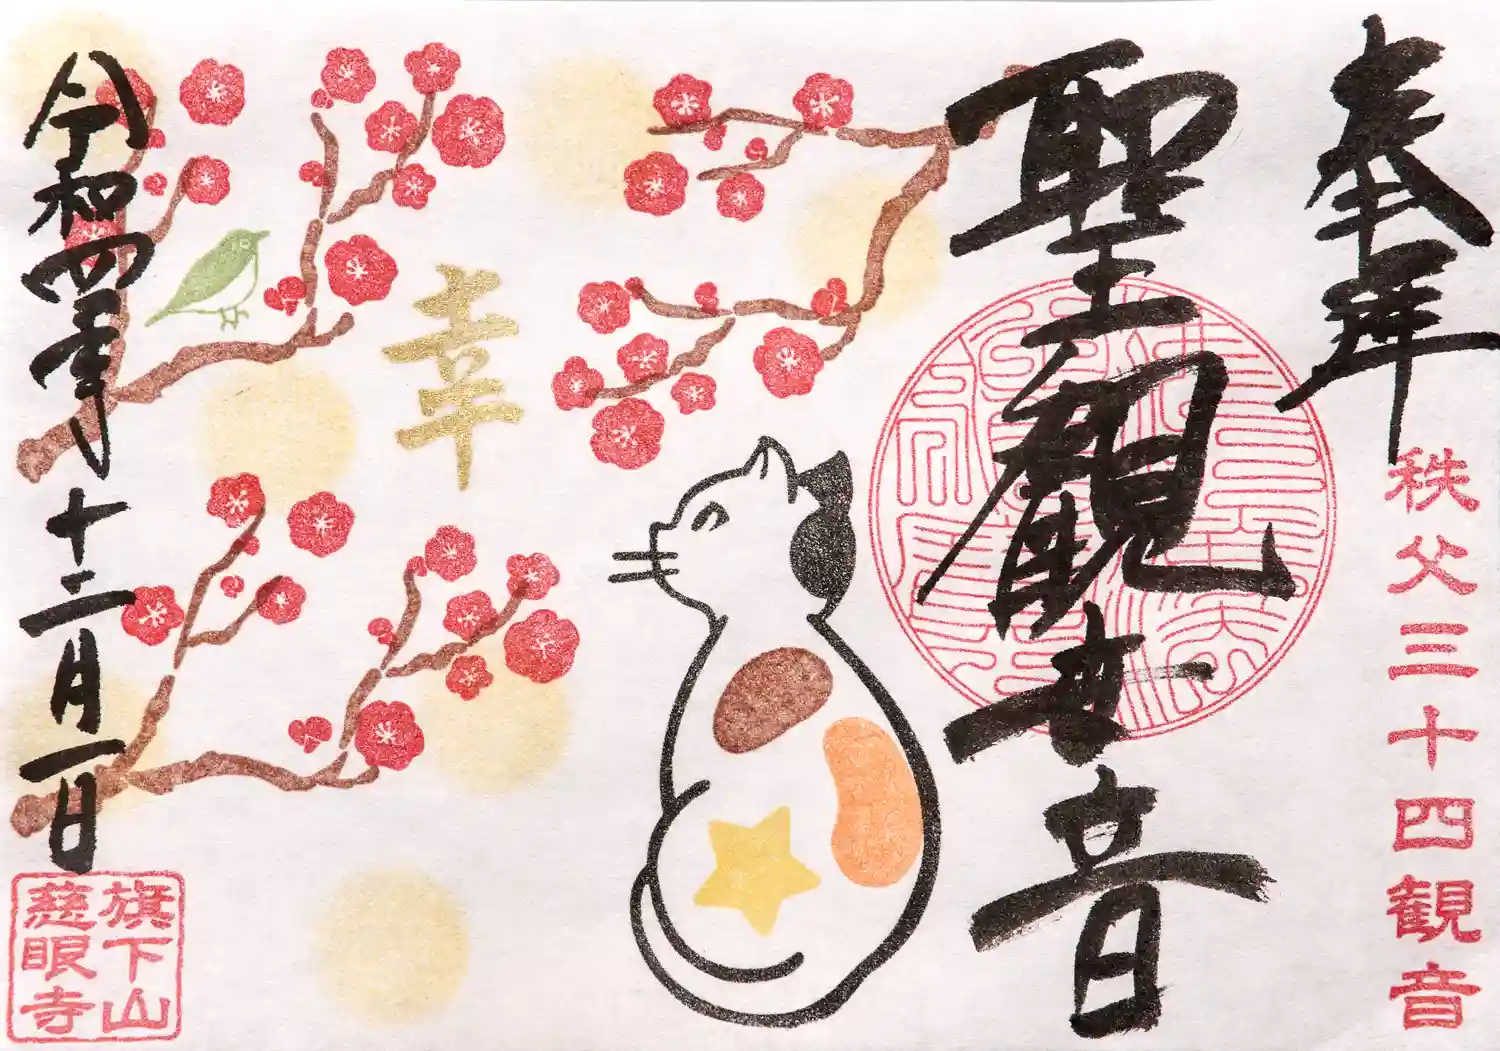 奉拝
秩父三十四観音
聖観世音
幸
令和四年十二月一日
旗下山
慈眼寺